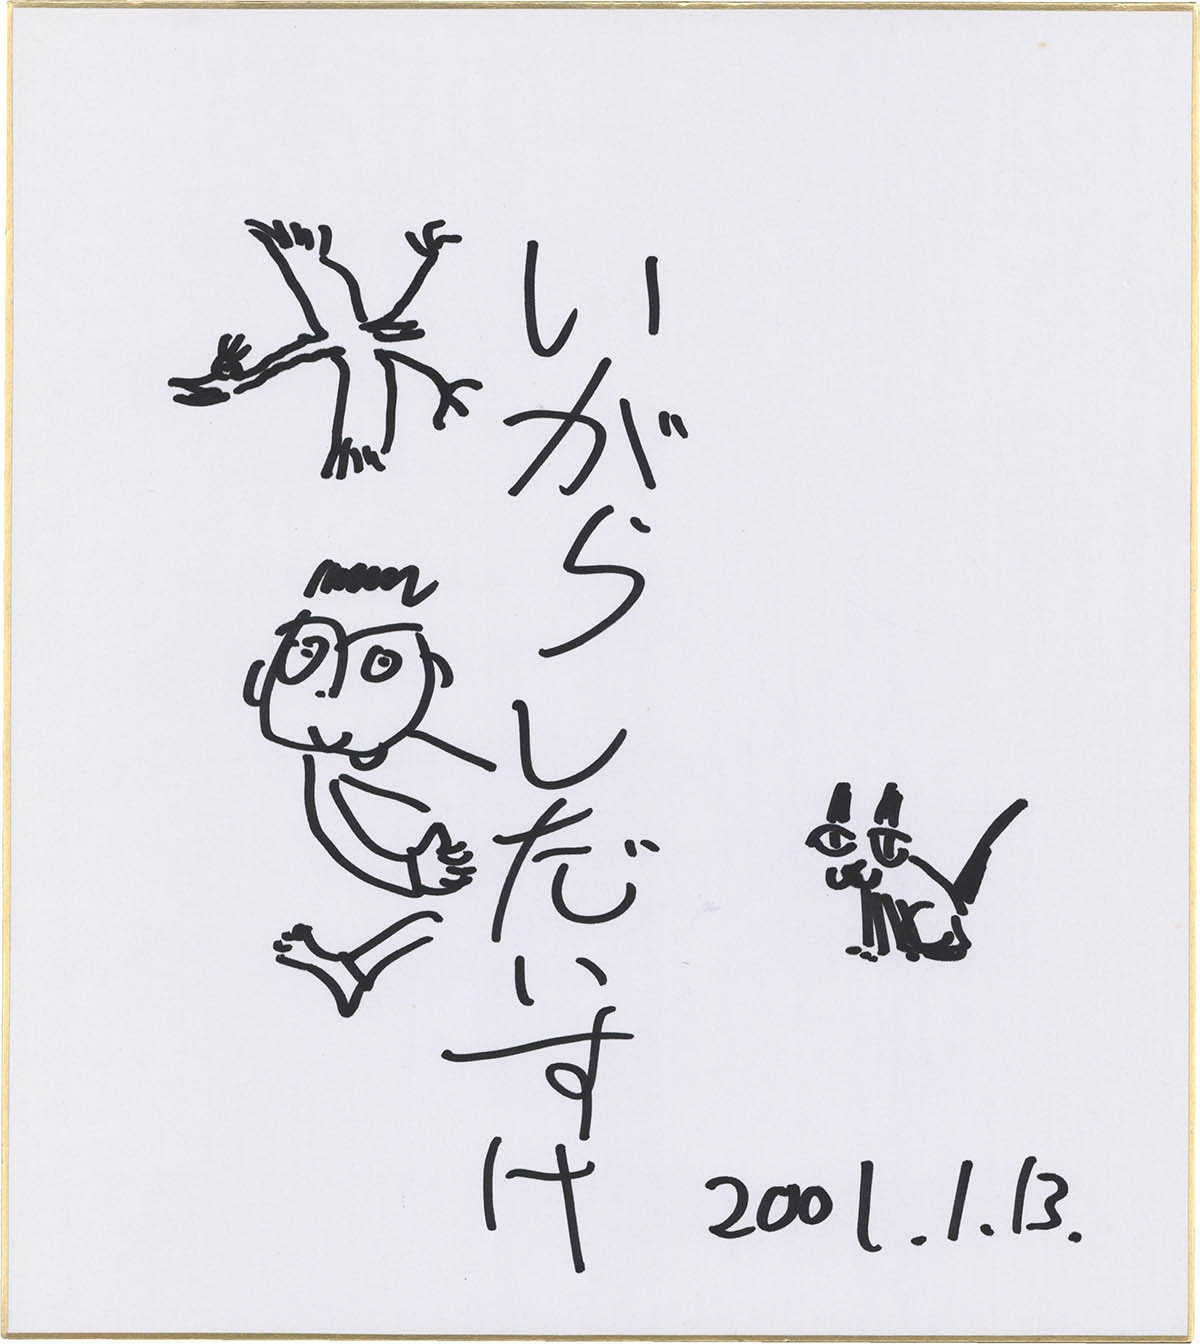 いがらしだいすけ
2001.1.13.